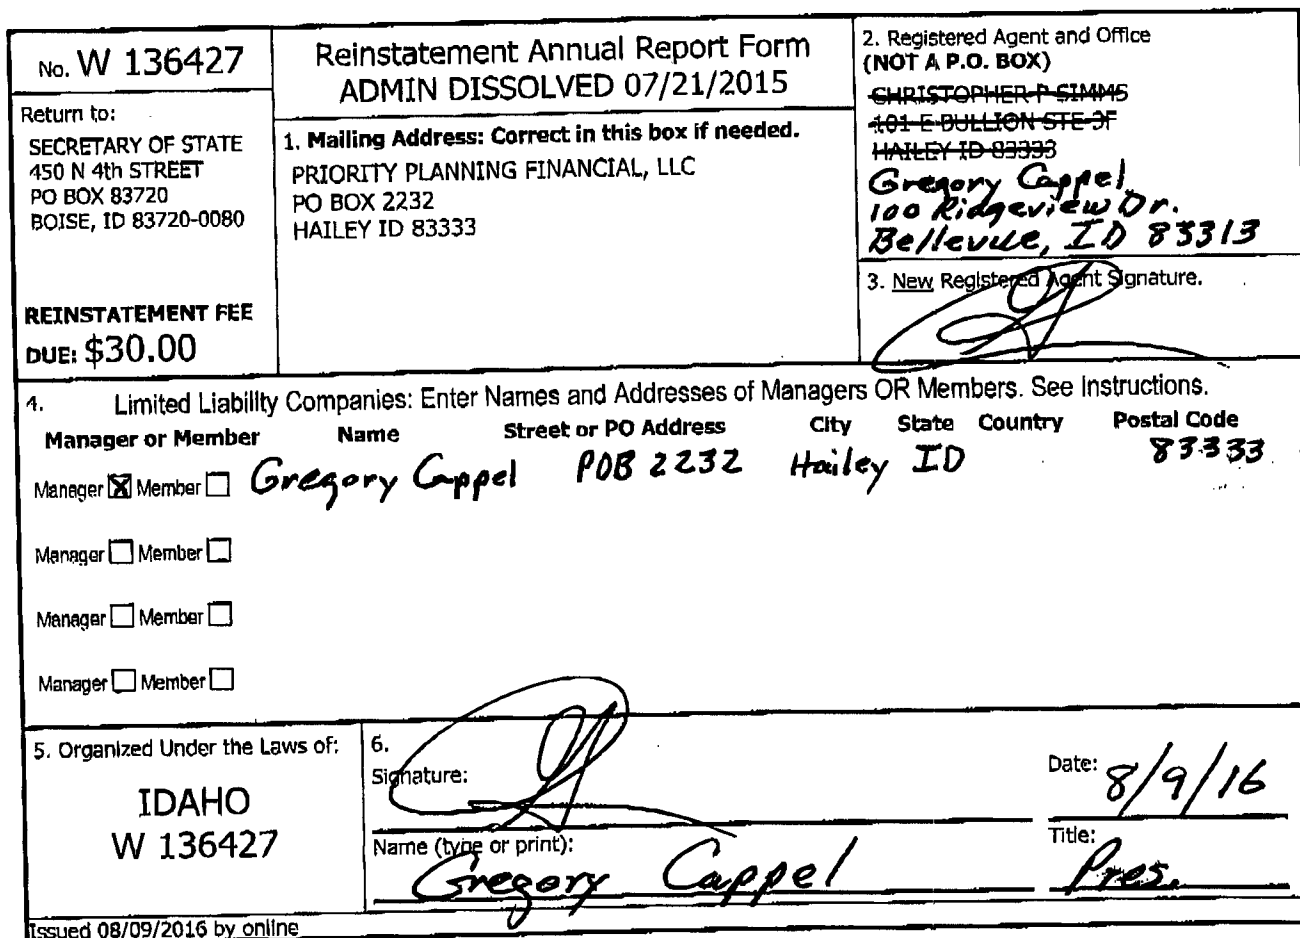 No. W 136427
Return to:
SECRETARY OF STATE
450 N 4th STREET
PO BOX 83720
BOISE, ID 83720-0080
REINSTATEMENT FEE
DUE: $30.00
Reinstatement Annual Report Form
ADMIN DISSOLVED 07/21/2015
1. Mailing Address: Correct in this box if needed.
PRIORITY PLANNING FINANCIAL, LLC
PO BOX 2232
HAILEY ID 83333
2. Registered Agent and Office
(NOT A P.O. BOX)
CHRISTOPHER P SIMMS
101 E BULLION STE 3F
HAILEY ID 83333
Gregory Cappel
100 Ridgeview Dr.
Bellevue, ID 83313
3. New Registered Agent Signature.
4. Limited Liability Companies: Enter Names and Addresses of Managers OR Members. See Instructions.
Manager or Member Name Street or PO Address City State Country Postal Code
Manager X Member Gregory Cappel POB 2232 Hailey ID 83333
Manager Member
Manager Member
Manager Member
5. Organized Under the Laws of:
IDAHO
W 136427
6.
Signature:
Date: 8/9/16
Name (type or print):
Gregory Cappel
Title:
Pres.
Issued 08/09/2016 by online